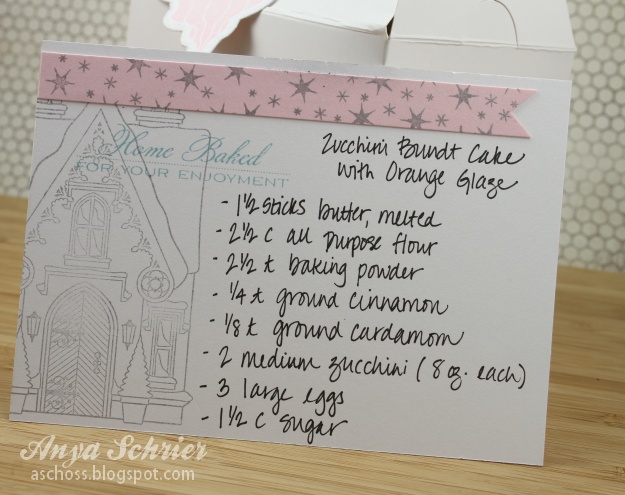 Home Baked
FOR YOUR ENJOYMENT
Zucchini Bundt Cake
with Orange Glaze
- 1 1/2 sticks butter, melted
- 2 1/2 c all purpose flour
- 2 1/2 t baking powder
- 1/4 t ground cinnamon
- 1/8 t ground cardamom
- 2 medium zucchini (8 oz. each)
- 3 large eggs
- 1 1/2 c sugar
Anya Schrier
aschoss.blogspot.com